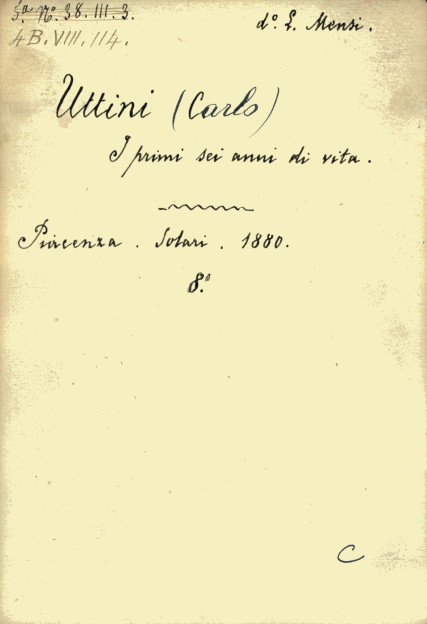 5.a N.o 38.III.3.
d.o L. Mensi.
4B.VIII.114.
Uttini (Carlo)
I primi sei anni di vita.
Piacenza. Solari. 1880.
8.o
C